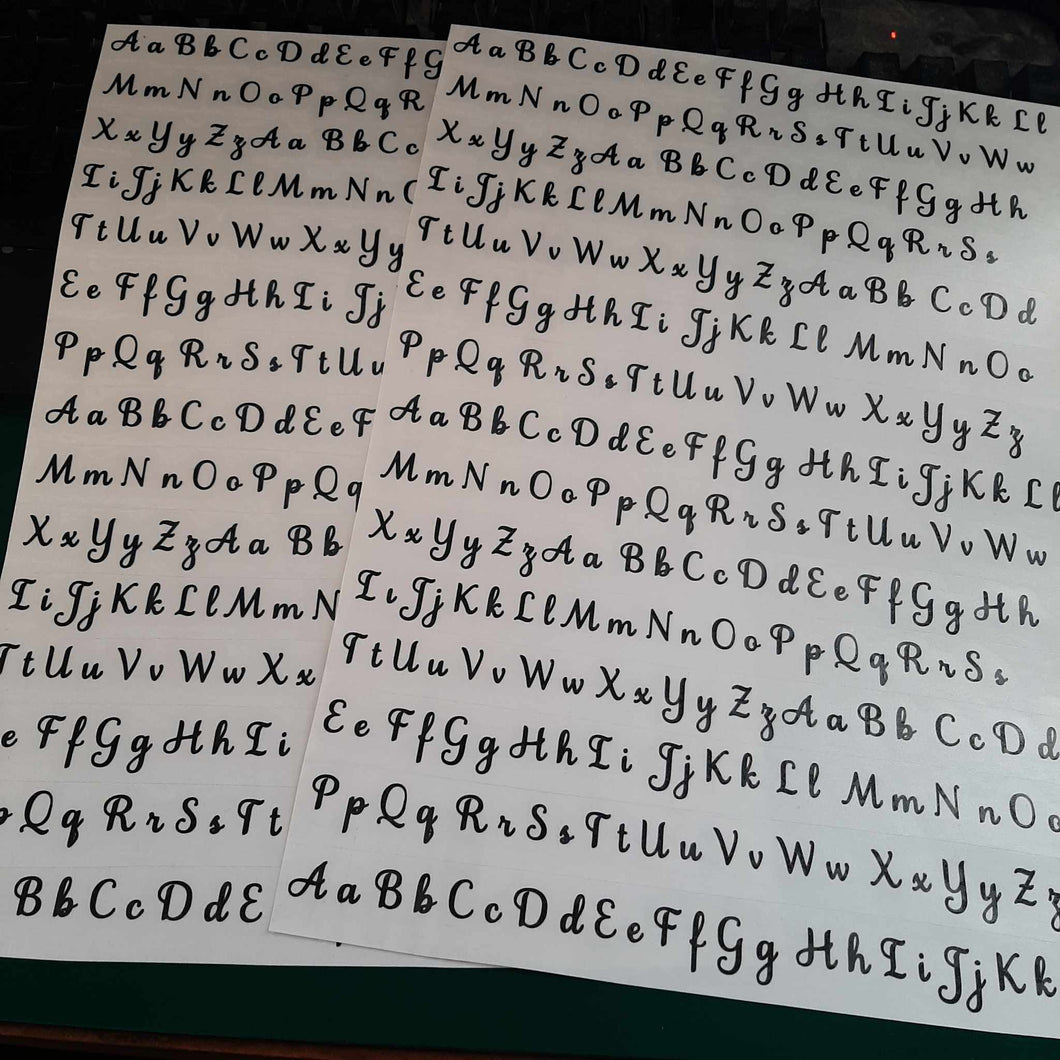 A a B b C c D d E e F f G
M m N n O o P p Q q R
X x Y y Z z A a B b C c
I i J j K k L l M m N n
T t U u V v W w X x Y y
E e F f G g H h I i J j
P p Q q R r S s T t U u
A a B b C c D d E e F
M m N n O o P p Q q
X x Y y Z z A a B b
I i J j K k L l M m N
T t U u V v W w X x
e F f G g H h I i
Q q R r S s T t
B b C c D d E
A a B b C c D d E e F f G g H h I i J j K k L l
M m N n O o P p Q q R r S s T t U u V v W w
X x Y y Z z A a B b C c D d E e F f G g H h
I i J j K k L l M m N n O o P p Q q R r S s
T t U u V v W w X x Y y Z z A a B b C c D d
E e F f G g H h I i J j K k L l M m N n O o
P p Q q R r S s T t U u V v W w X x Y y Z z
A a B b C c D d E e F f G g H h I i J j K k L l
M m N n O o P p Q q R r S s T t U u V v W w
X x Y y Z z A a B b C c D d E e F f G g H h
I i J j K k L l M m N n O o P p Q q R r S s
T t U u V v W w X x Y y Z z A a B b C c D d
E e F f G g H h I i J j K k L l M m N n O o
P p Q q R r S s T t U u V v W w X x Y y Z z
A a B b C c D d E e F f G g H h I i J j K k